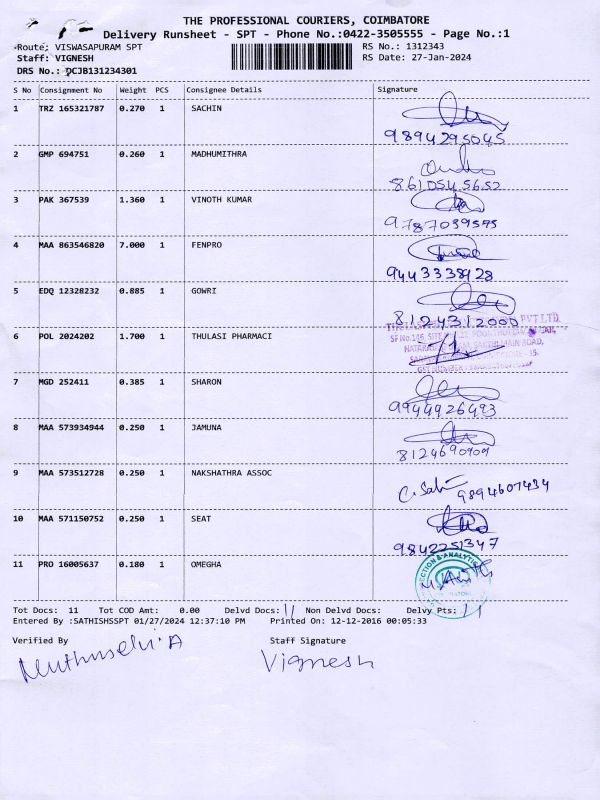 THE PROFESSIONAL COURIERS, COIMBATORE
Delivery Runsheet - SPT - Phone No.:0422-3505555 - Page No.:1
Route: VISWASAPURAM SPT RS No.: 1312343
Staff: VIGNESH RS Date: 27-Jan-2024
DRS No.: DCJB131234301
S No Consignment No Weight PCS Consignee Details Signature
1 TRZ 165321787 0.270 1 SACHIN
9894295045
2 GMP 694751 0.260 1 MADHUMITHRA
8610545652
3 PAK 367539 1.360 1 VINOTH KUMAR
9787039595
4 MAA 863546820 7.000 1 FENPRO
9443338928
5 EDQ 12328232 0.885 1 GOWRI
8124312000
PVT LTD
6 POL 2024202 1.700 1 THULASI PHARMACI
SF No.146, SITE
MAIN ROAD,
7 MGD 252411 0.385 1 SHARON
9944926493
8 MAA 573934944 0.250 1 JAMUNA
8124690909
9 MAA 573512728 0.250 1 NAKSHATHRA ASSOC
9894607434
10 MAA 571150752 0.250 1 SEAT
9842251347
11 PRO 16005637 0.180 1 OMEGHA
Tot Docs: 11 Tot COD Amt: 0.00 Delvd Docs: 11 Non Delvd Docs: Delvy Pts: 11
Entered By :SATHISHSSPT 01/27/2024 12:37:10 PM Printed On: 12-12-2016 00:05:33
Verified By Staff Signature
Muthuselvi.A Vignesh